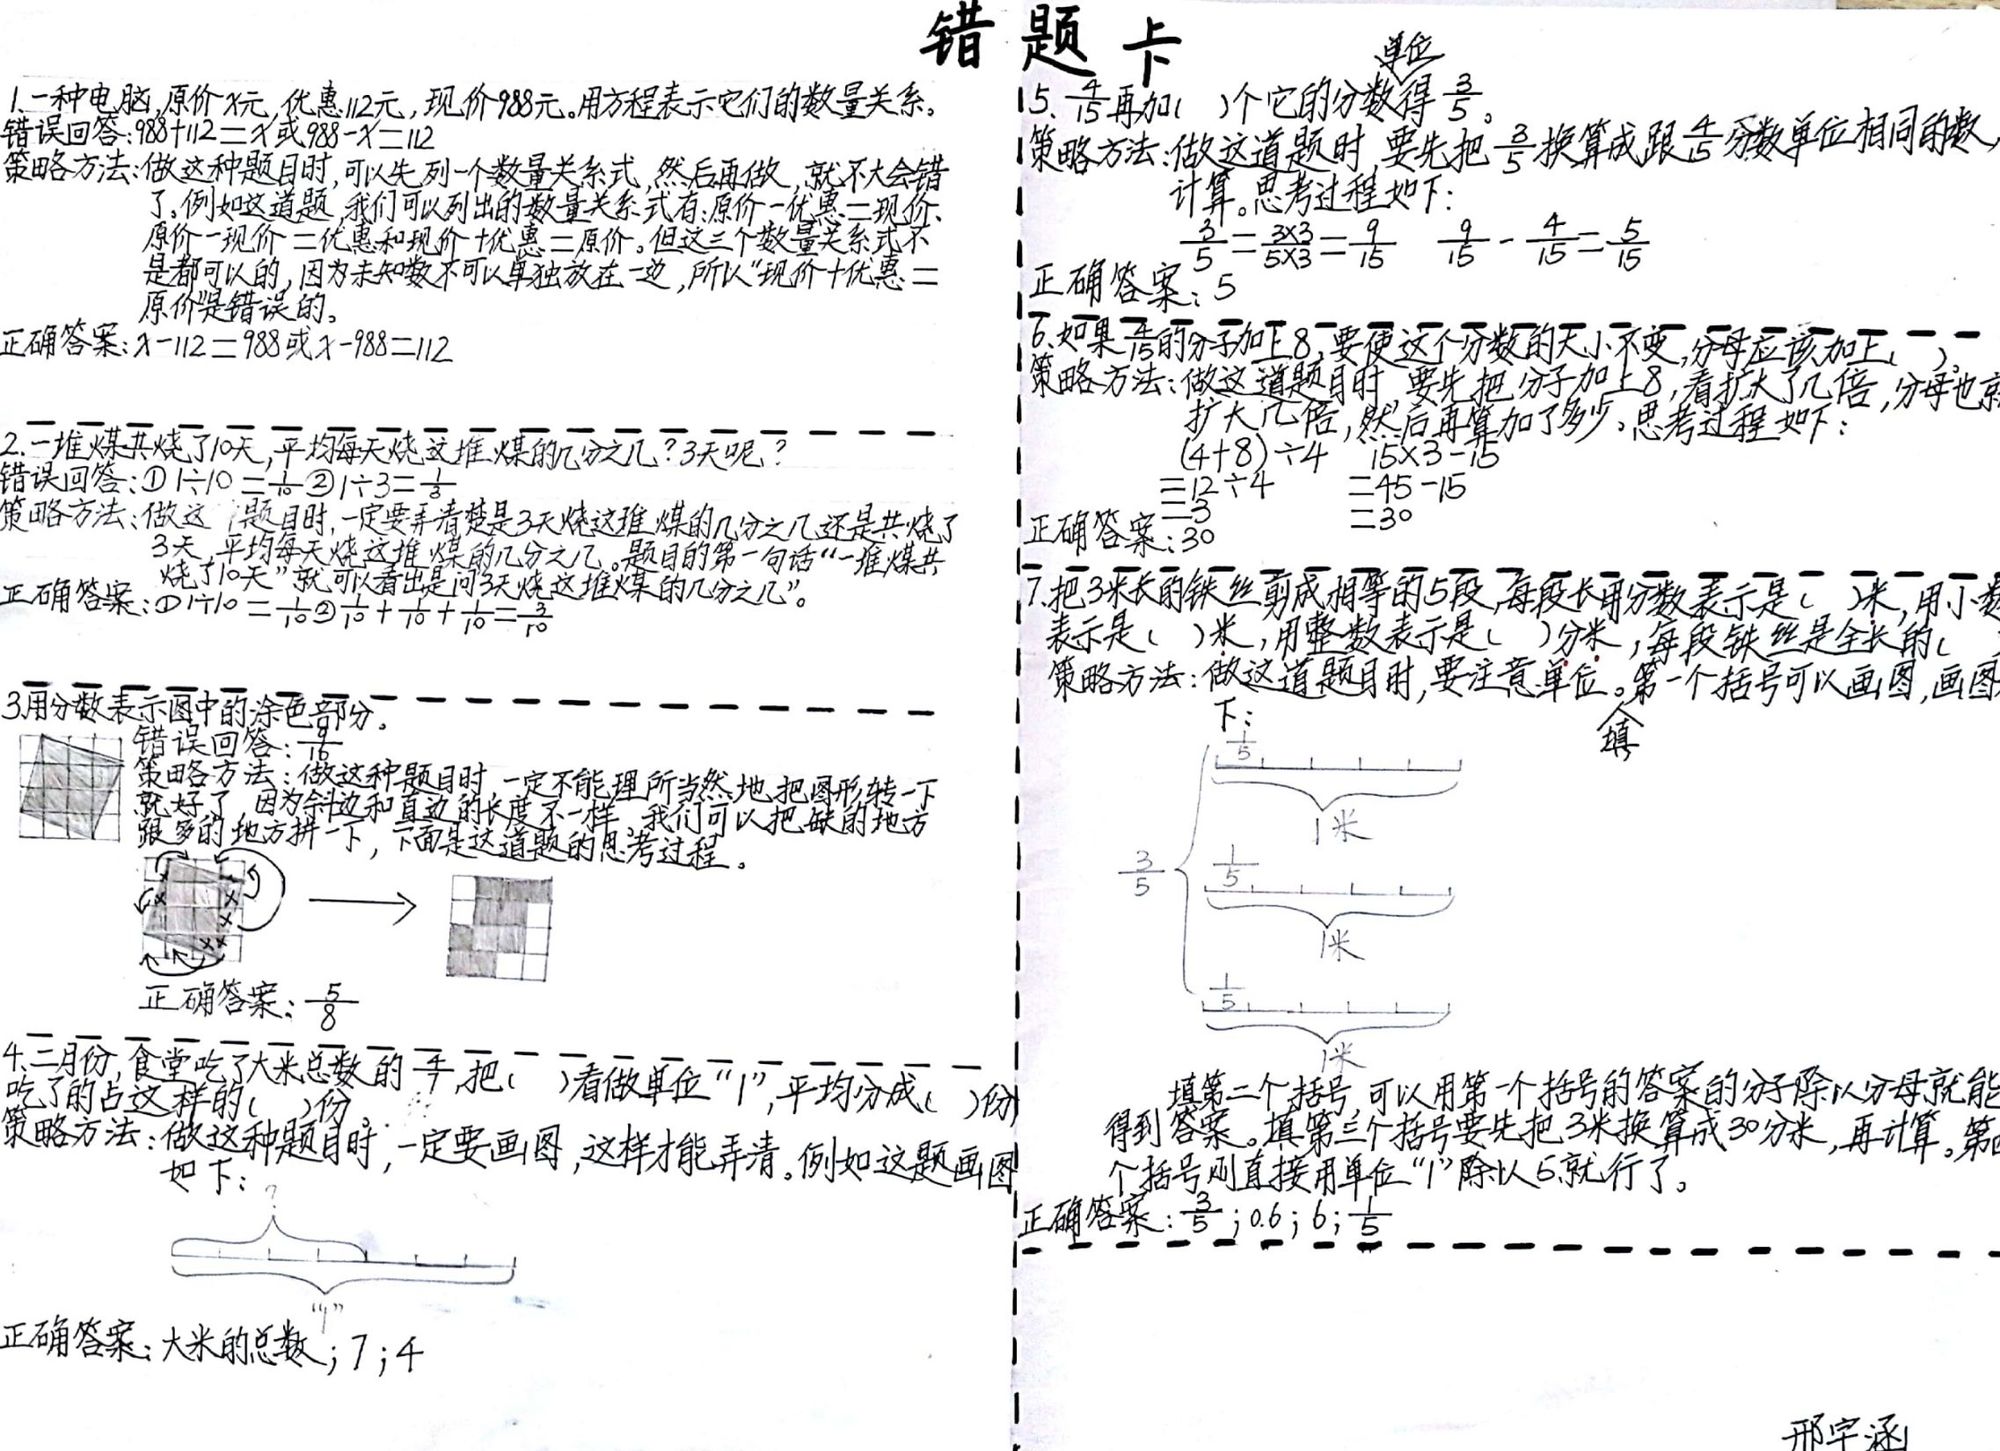 错题卡
1.一种电脑,原价x元,优惠112元,现价988元。用方程表示它们的数量关系。
错误回答:988+112=x或988-x=112
策略方法:做这种题目时,可以先列一个数量关系式,然后再做,就不大会错
了。例如这道题,我们可以列出的数量关系式有:原价-优惠=现价、
原价-现价=优惠和现价+优惠=原价。但这三个数量关系式不
是都可以的,因为未知数不可以单独放在一边,所以“现价+优惠=
原价”是错误的。
正确答案:x-112=988或x-988=112
2.一堆煤共烧了10天,平均每天烧这堆煤的几分之几?3天呢?
错误回答:①1÷10=1/10②1÷3=1/3
策略方法:做这题目时,一定要弄清楚是3天烧这堆煤的几分之几还是共烧了
3天,平均每天烧这堆煤的几分之几。题目的第一句话“一堆煤共
烧了10天”就可以看出是问3天烧这堆煤的几分之几”。
正确答案:①1÷10=1/10②1/10+1/10+1/10=3/10
3.用分数表示图中的涂色部分。
错误回答:9/16
策略方法:做这种题目时,一定不能理所当然地把图形转一下
就好了,因为斜边和直边的长度不一样,我们可以把缺的地方
跟多的地方拼一下,下面是这道题的思考过程。
正确答案:5/8
4.二月份,食堂吃了大米总数的4/7,把( )看做单位“1”,平均分成( )份
吃了的占这样的( )份。
策略方法:做这种题目时,一定要画图,这样才能弄清。例如这题画图
如下:
?
“1”
正确答案:大米的总数;7;4
单位
5.4/15再加( )个它的分数得3/5。
策略方法:做这道题时,要先把3/5换算成跟4/15分数单位相同的数,
计算。思考过程如下:
3/5=3×3/5×3=9/15 9/15-4/15=5/15
正确答案:5
6.如果4/15的分子加上8,要使这个分数的大小不变,分母应该加上( )。
策略方法:做这道题目时,要先把分子加上8,看扩大了几倍,分母也就
扩大几倍,然后再算加了多少。思考过程如下:
(4+8)÷4 15×3-15
=12÷4 =45-15
=3 =30
正确答案:30
7.把3米长的铁丝剪成相等的5段,每段长用分数表示是( )米,用小数
表示是( )米,用整数表示是( )分米,每段铁丝是全长的( )
策略方法:做这道题目时,要注意单位。第一个括号可以画图,画图
填
下:
1/5
1米
3/5
1/5
1米
1/5
1米
填第二个括号,可以用第一个括号的答案的分子除以分母就能
得到答案。填第三个括号要先把3米换算成30分米,再计算。第四
个括号则直接用单位“1”除以5就行了。
正确答案:3/5;0.6;6;1/5
邢宇涵